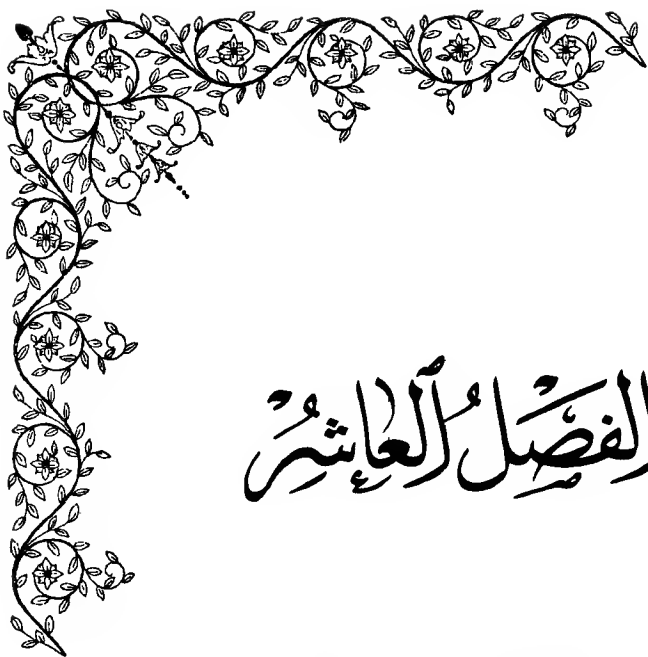 الفصلُ ٱلعاشرُ